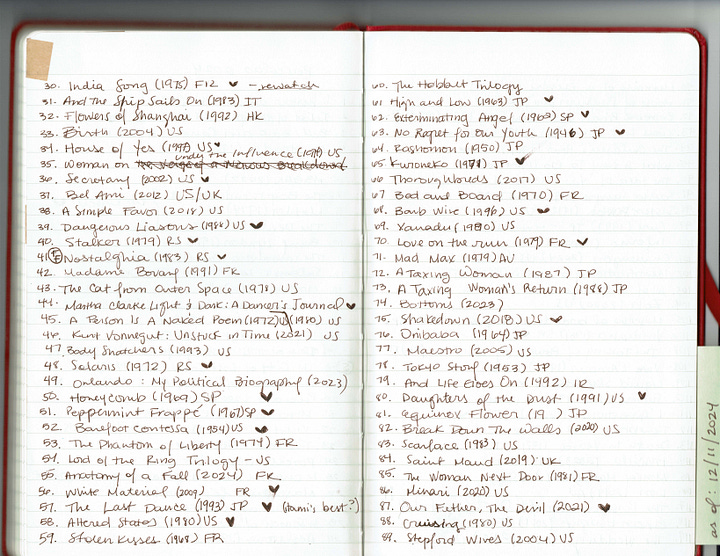 30. India Song (1975) F12 ♥ - rewatch
31. And The Ship Sails On (1983) IT
32. Flowers of Shanghai (1992) HK
33. Birth (2004) US
34. House of Yes (1997) US ♥
under the influence (1974) US
35. Woman on the verge of a Nervous Breakdown
36. Secretary (2002) US ♥
37. Bel Ami (2012) US/UK
38. A Simple Favor (2018) US
39. Dangerous Liasons (1988) US ♥
40. Stalker (1979) RS ♥
41. Nostalghia (1983) RS ♥
42. Madame Bovary (1991) FR
43. The Cat from Outer Space (1978) US
44. Martha Clarke Light & Dark: A Dancer's Journal ♥
45. A Person Is A Naked Poem (1972) US (1980) US
46. Kurt Vonnegut: Unstuck in Time (2021) US
47. Body Snatchers (1993) US
48. Solaris (1972) RS ♥
49. Orlando: My Political Biography (2023)
50. Honeycomb (1969) SP ♥
51. Peppermint Frappé (1967) SP ♥
52. Barefoot Contessa (1954) US ♥
53. The Phantom of Liberty (1974) FR
54. Lord of the Ring Trilogy - US
55. Anatomy of a Fall (2024) FR
56. White Material (2009) FR ♥
57. The Last Dance (1993) JP ♥ (Itami's best?)
58. Altered States (1980) US ♥
59. Stolen Kisses (1968) FR
60. The Hobbet Trilogy
61 High and Low (1963) JP ♥
62. Exterminating Angel (1963) SP ♥
63. No Regret for Our Youth (1946) JP ♥
64. Rashomon (1950) JP
65. Kuroneko (1971) JP ♥
66 Thoroughbreds (2017) US
67 Bed and Board (1970) FR
68. Barb Wire (1996) US ♥
69. Xanadu (1980) US
70. Love on the run (1979) FR ♥
71. Mad Max (1979) AU
72. A Taxing Woman (1987) JP
73. A Taxing Woman's Return (1988) JP
74. Bottoms (2023)
75. Shakedown (2018) US ♥
76. Onibaba (1964) JP
77. Maestro (2005) US
78. Tokyo Story (1953) JP
79. And Life Goes On (1992) IR
80. Daughters of the Dust (1991) US ♥
81. Equinox Flower (19 ) JP
82. Break Down The Walls (2020) US
83. Scarface (1983) US
84. Saint Maud (2019) UK
85. The Woman Next Door (1981) FR
86. Minari (2020) US
87. Our Father, The Devil (2021) ♥
88. Cruising (1980) US
89. Stepford Wives (2004) US
as of: 12/11/2024